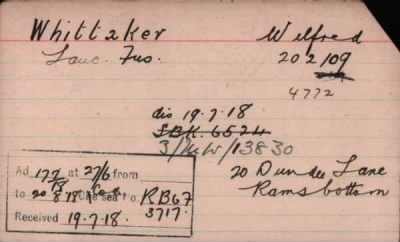 Whittaker Wilfred
Lanc. Fus. 202109
4772
dis 19.7.18
SBK. 6524
3/MW/13830
20 Dundee Lane
Ramsbottom
Ad 177 at 27/6 from
to 20 8 18 One sea to. RB67
3717.
Received 19.7.18.